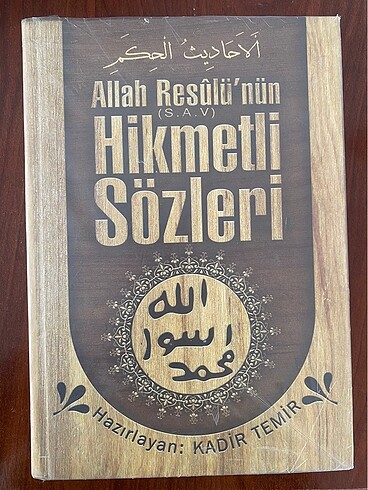 اَلْاَحَادِيثُ الْحِكَمِ
Allah Resûlü'nün
(S.A.V)
Hikmetli
Sözleri
الله
رسول
محمد
Hazırlayan: KADİR TEMİR